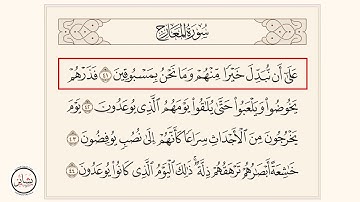 سُورَةُ المَعَارِجِ
عَلَىٰٓ أَن نُّبَدِّلَ خَيْرًا مِّنْهُمْ وَمَا نَحْنُ بِمَسْبُوقِينَ ٤١ فَذَرْهُمْ
يَخُوضُوا۟ وَيَلْعَبُوا۟ حَتَّىٰ يُلَٰقُوا۟ يَوْمَهُمُ ٱلَّذِى يُوعَدُونَ ٤٢ يَوْمَ
يَخْرُجُونَ مِنَ ٱلْأَجْدَاثِ سِرَاعًا كَأَنَّهُمْ إِلَىٰ نُصُبٍ يُوفِضُونَ ٤٣
خَٰشِعَةً أَبْصَٰرُهُمْ تَرْهَقُهُمْ ذِلَّةٌ ۚ ذَٰلِكَ ٱلْيَوْمُ ٱلَّذِى كَانُوا۟ يُوعَدُونَ ٤٤